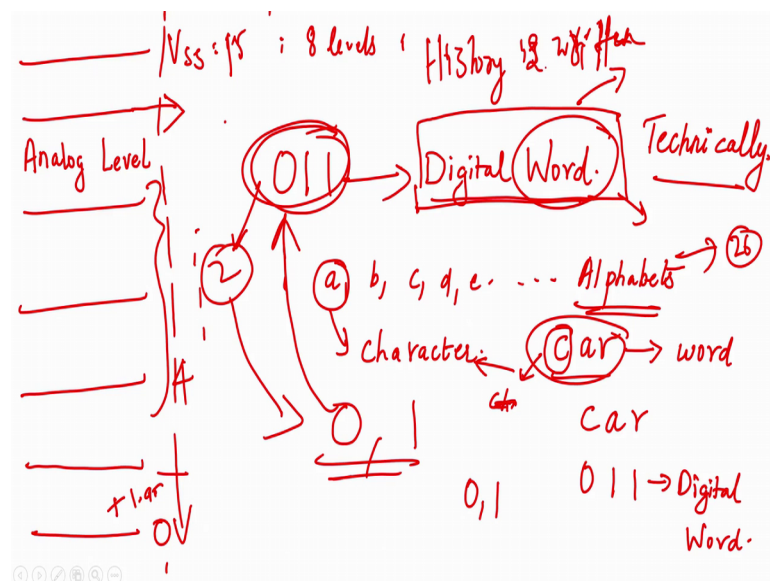 8 levels
History is written
Analog Level
011
Digital Word.
Technically.
2
a, b, c, d, e. .... Alphabets
26
Character.
Car
word
0, 1
car
0,1
011 → Digital
Word.
0V